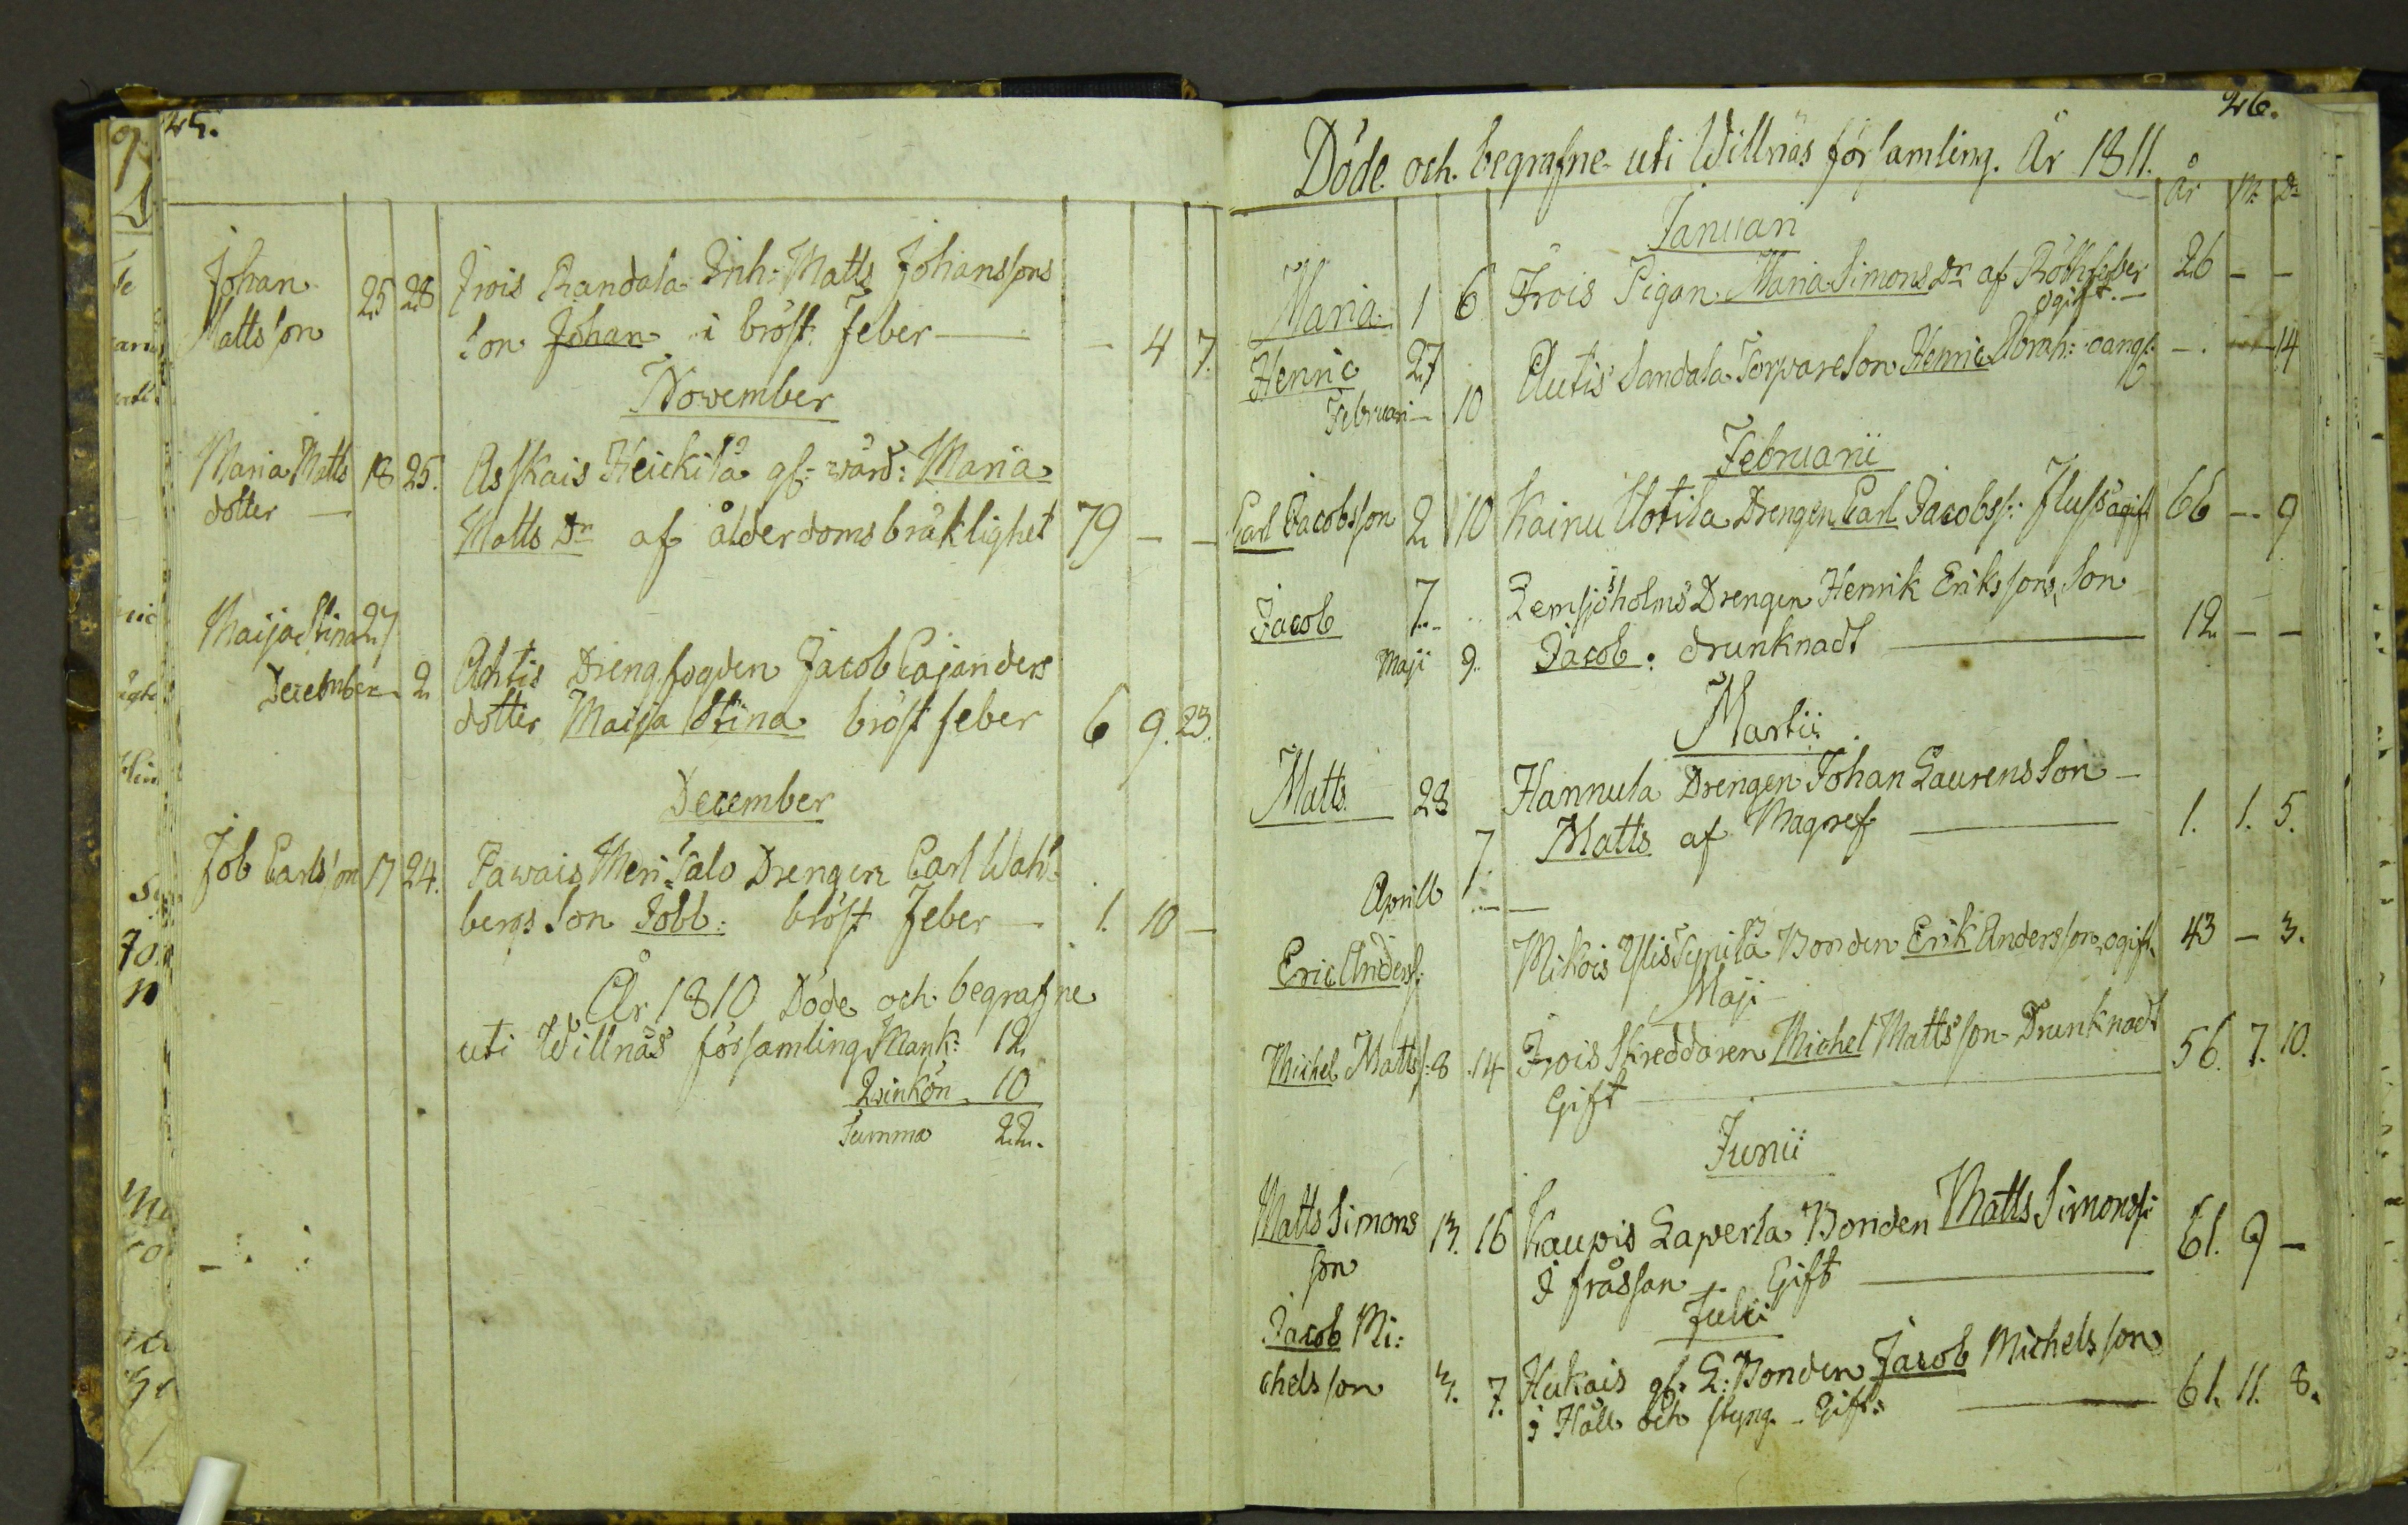 25.
Johan 25 28 Frois Randala Inh: Matts Johanssons
Mattsson son Johan i bröst feber — - 4 7.
November
Maria Matts 18 25. Askais Heickilä gf: wärd: Maria
dotter — Matts Dr af ålderdoms bräklighet 79 - -
Maija Stina 27
December 2 Ahtis Drengfogden Jacob Cajanders
dotter Maija Stina bröst feber 6 9. 23.
December
Job Carlsson 17 24. Pawais Meri-Talo Drengen Carl Wahl
bergs Son Jobb: bröst feber — 1. 10 -
År 1810 Döde och begrafne
uti Willnäs församling Mank: 12
Qwinkön. 10
Summa 22.
26.
Döde och begrafne uti Willnäs församling. År 1811.
År M: D:
Januari
Maria 1 6 Frois Pigan Maria Simons Dr af Röthfeber 26 - -
ogift. —
Henric 27 Autis Sandala Torpare Son Henric Abrah: oangf: - . 14
Februari - 10
Februarii
Carl Jacobsson 2 10 Kainu Uotila Drengen Carl Jacobss: Fluss ogift 66 - 9
Jacob 7 Lemsjöholms Drengen Henrik Erikssons Son
Maji 9. Jacob: drunknadt — 12 - -
Martii
Matts 28 Hannula Drengen Johan Laurens Son -
7 Matts af Magref — 1. 1. 5.
Aprill 1.
Eric Anderss: Mikois Ylis Bonden Erik Andersson ogift 43 - 3.
Maji
Michel Mattss: 8 14 Frois Skreddaren Michel Mattsson Drunknadt 56. 7. 10.
Gift —
Junii
Matts Simons 13. 16 Kaupis Laperla Bonden Matts Simonss: 61. 9 -
son I frässan - Gift —
Julii
Jacob Mi:
chelsson 3. 7. Hukais gf: L: Bonden Jacob Michelsson
i Håll och styng - Gift: — 61. 11. 8.